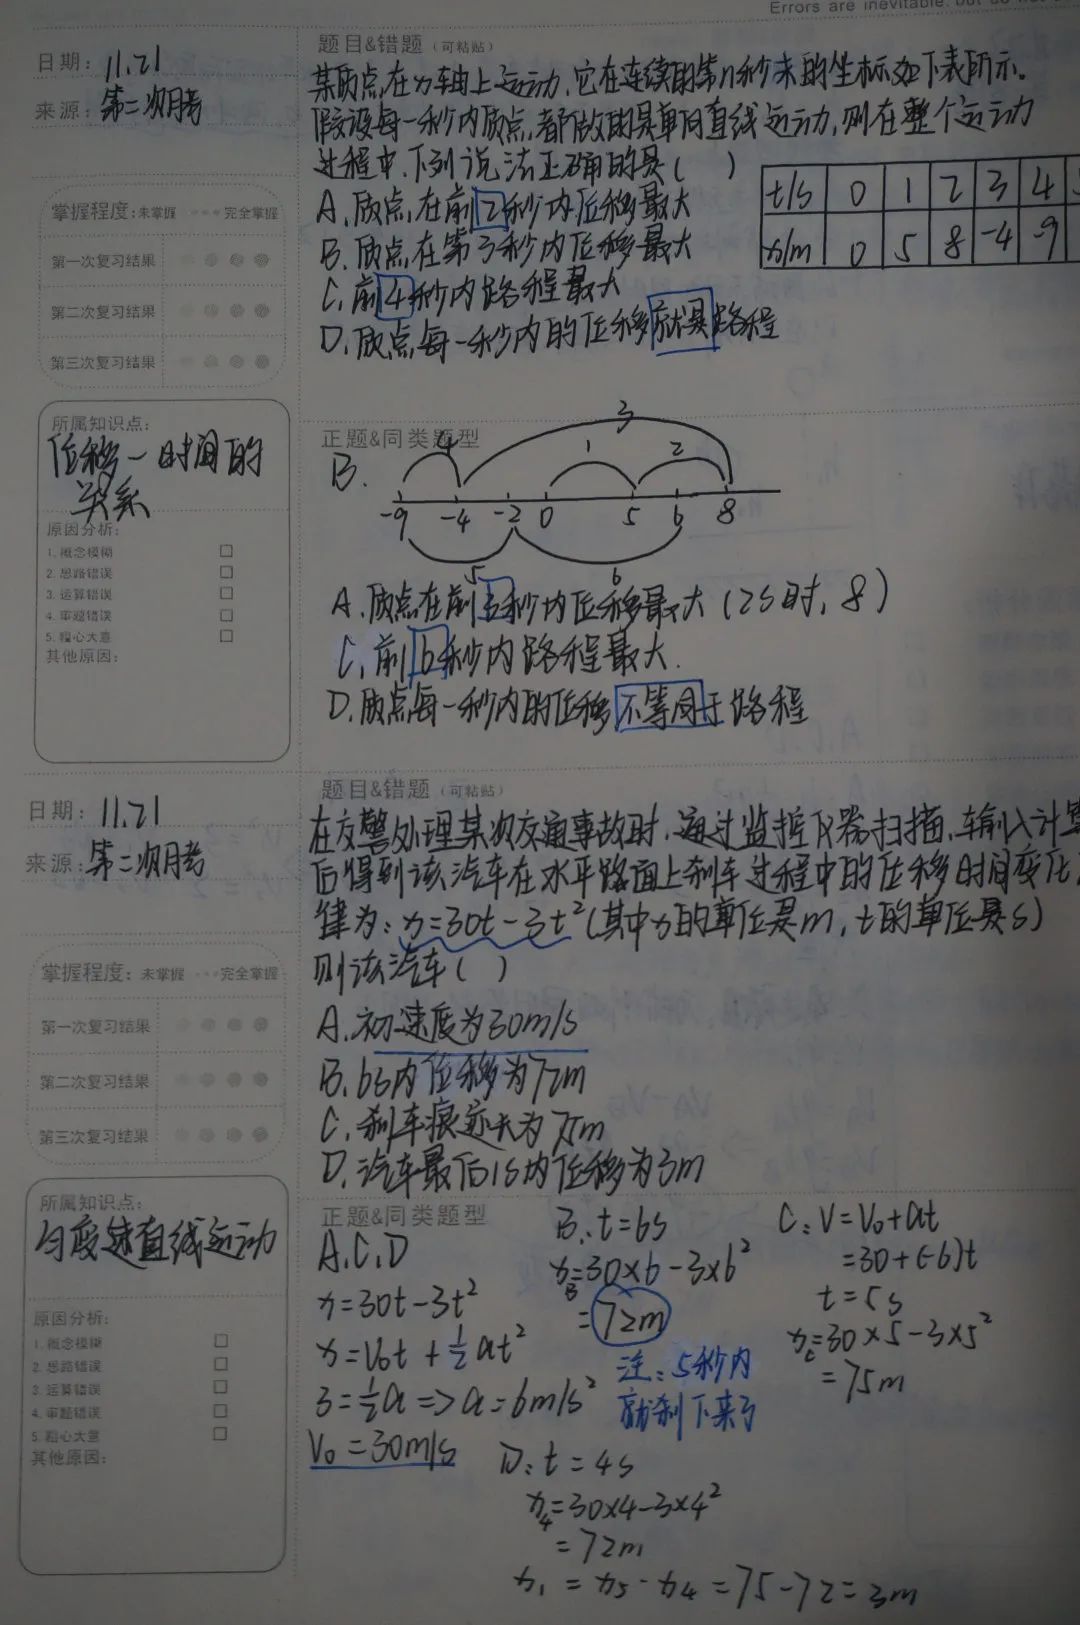 Errors are inevitable, but do not
日期: 11.21
来源: 第二次月考
题目&错题 (可粘贴)
某质点在x轴上运动,它在连续的第n秒末的坐标如下表所示。
假设每一秒内质点都做的是单向直线运动,则在整个运动
过程中,下列说法正确的是( )
A.质点在前2秒内位移最大
B.质点在第3秒内位移最大
C.前4秒内路程最大
D.质点每一秒内的位移就是路程
t/s 0 1 2 3 4
x/m 0 5 8 -4 -9
掌握程度: 未掌握 完全掌握
第一次复习结果
第二次复习结果
第三次复习结果
所属知识点:
位移—时间的
关系
原因分析:
1. 概念模糊
2. 思路错误
3. 运算错误
4. 审题错误
5. 粗心大意
其他原因:
正题&同类题型
B.
4 3 1 2
-9 -4 -2 0 5 6 8
5 6
A.质点在前 秒内位移最大(2s时,8)
C.前6秒内路程最大.
D.质点每一秒内的位移不等同于路程
日期: 11.21
来源: 第二次月考
题目&错题 (可粘贴)
在交警处理某次交通事故时,通过监控仪器扫描,车输入计算
后得到该汽车在水平路面上刹车过程中的位移时间变化
律为: x=30t-3t²(其中x的单位是m,t的单位是s)
则该汽车( )
A.初速度为30m/s
B.6s内位移为72m
C.刹车痕迹长为75m
D.汽车最后1s内位移为3m
掌握程度: 未掌握 完全掌握
第一次复习结果
第二次复习结果
第三次复习结果
所属知识点:
匀变速直线运动
原因分析:
1. 概念模糊
2. 思路错误
3. 运算错误
4. 审题错误
5. 粗心大意
其他原因:
正题&同类题型
A,C,D
x=30t-3t²
x=V₀t+½at²
3=½a=>a=6m/s²
V₀=30m/s
B:t=6s
x_B=30×6-3×6²
=72m
注:5秒内
就刹下来了
C:V=V₀+at
=30+(-6)t
t=5s
x_C=30×5-3×5²
=75m
D:t=4s
x₄=30×4-3×4²
=72m
x₁=x₅-x₄=75-72=3m